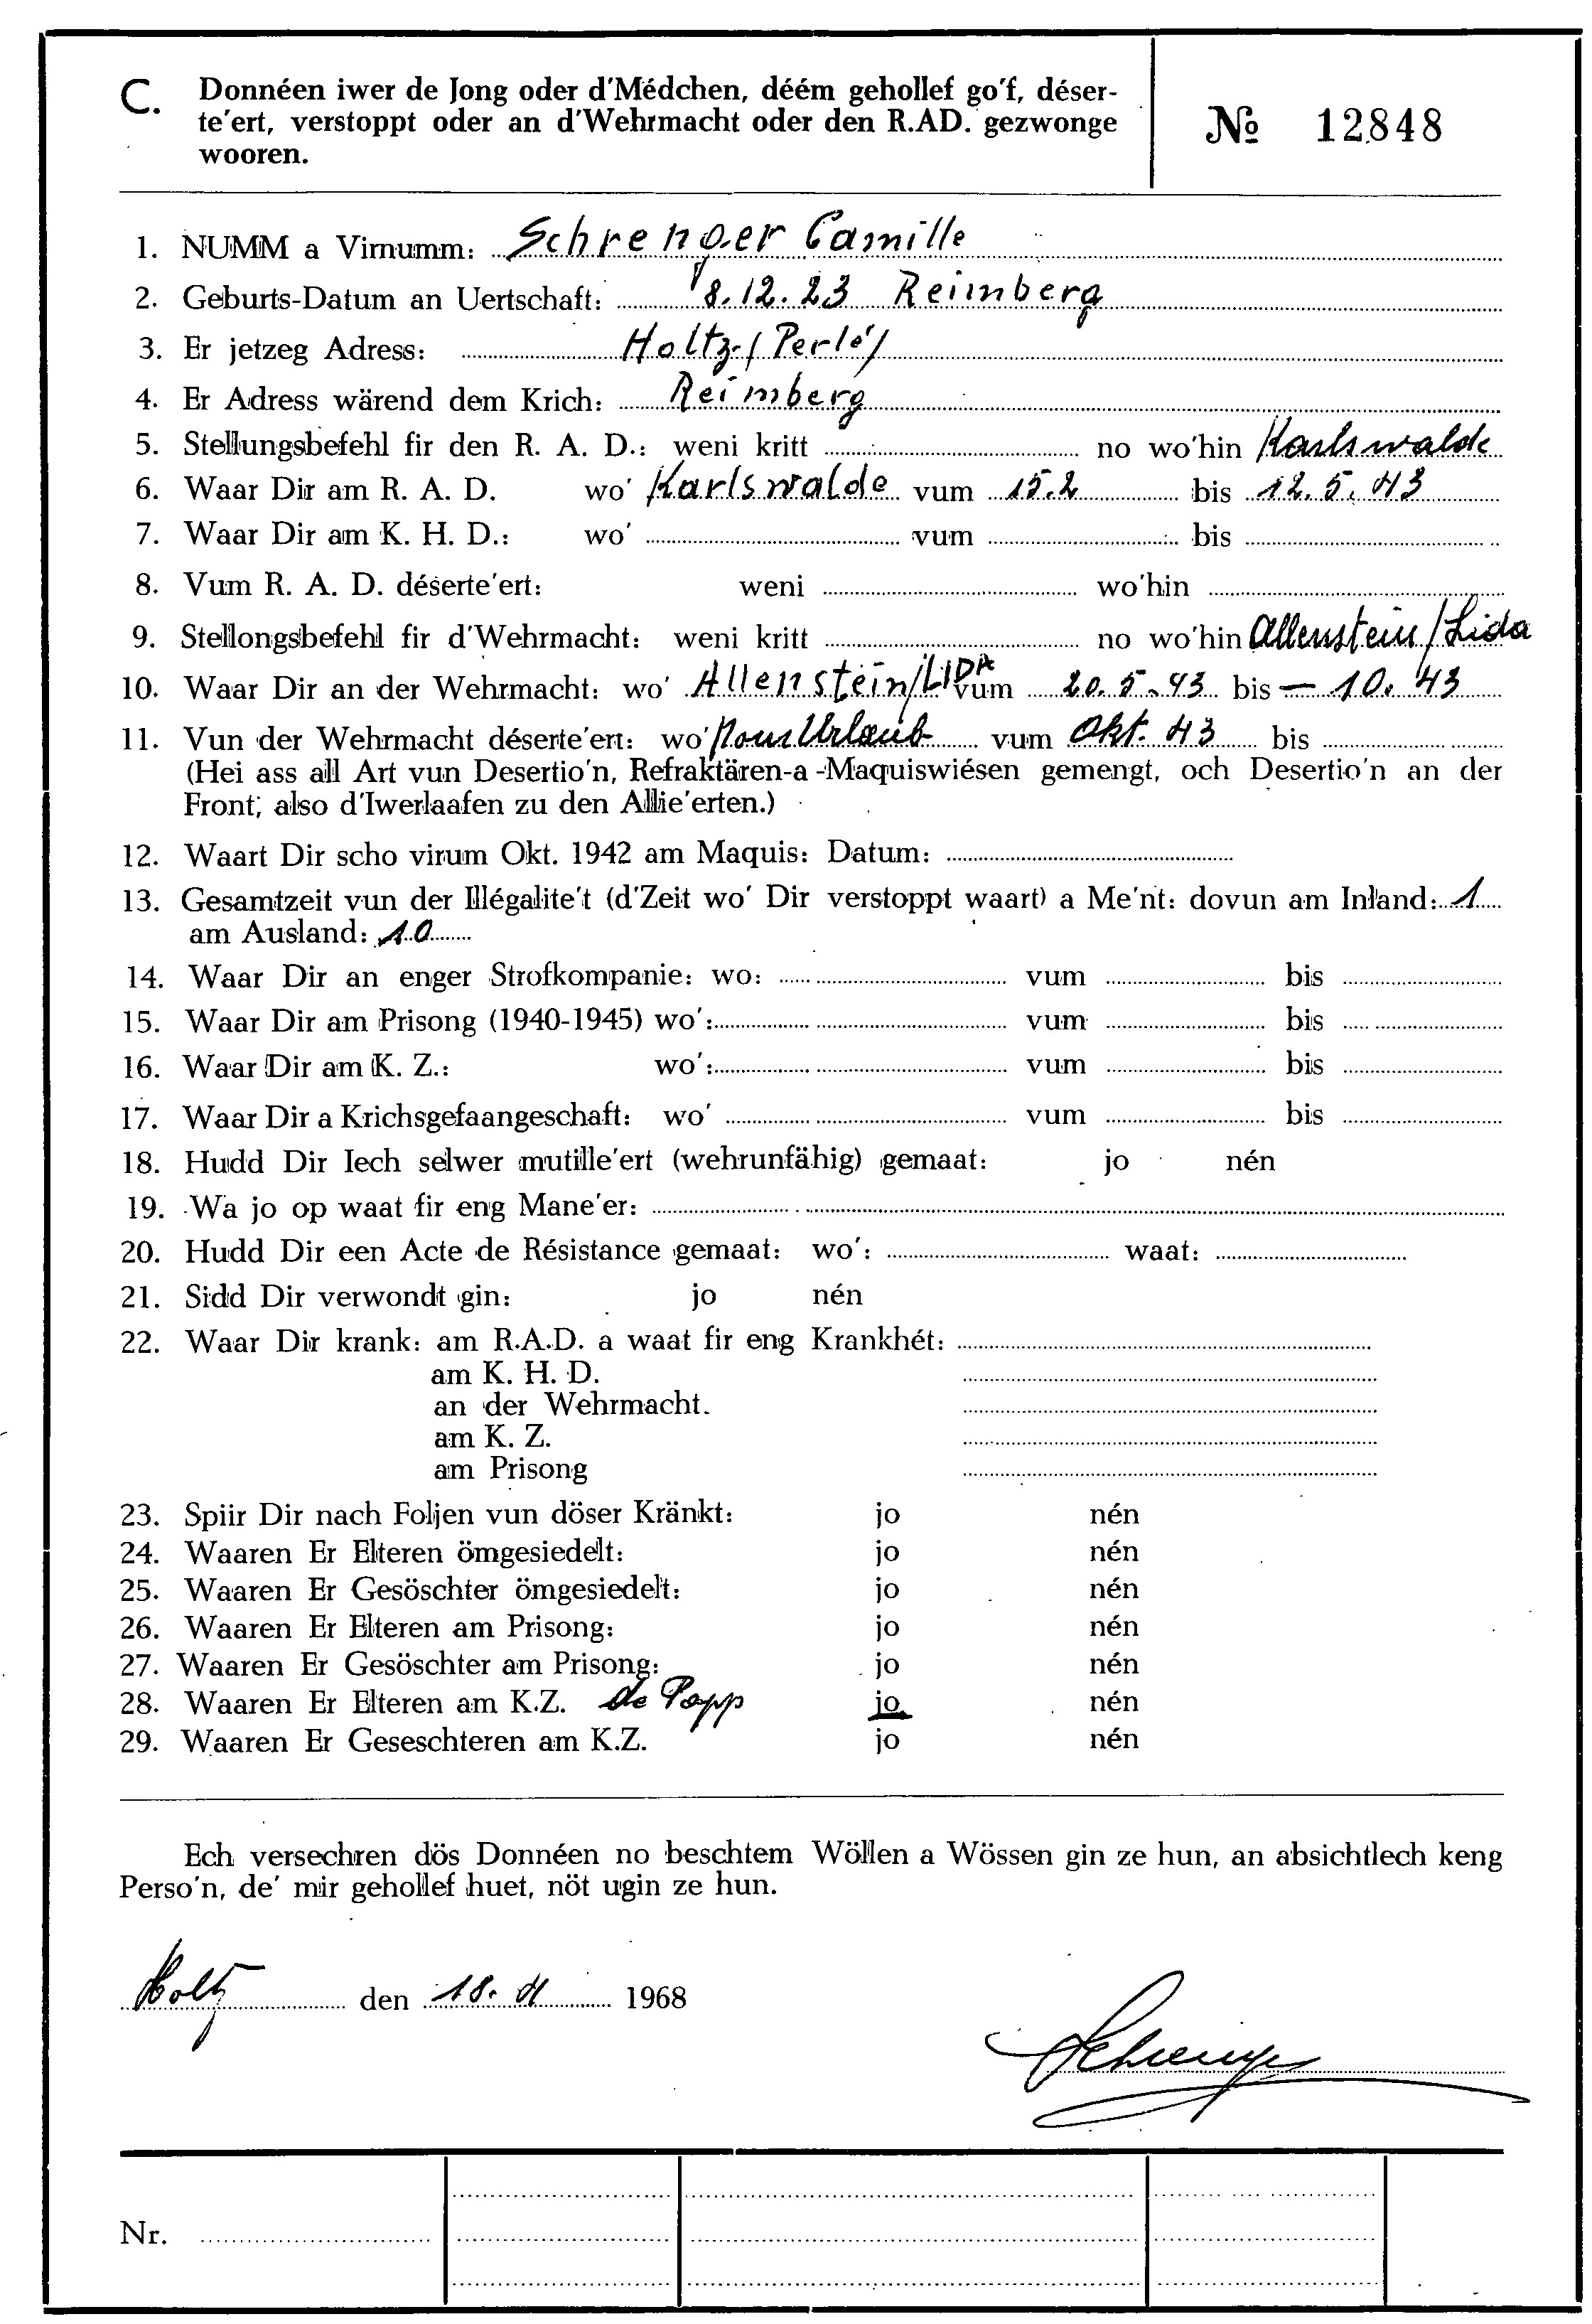 C. Donnéen iwer de Jong oder d'Médchen, déém gehollef go'f, déser-
te'ert, verstoppt oder an d'Wehrmacht oder den R.AD. gezwonge
wooren.
№ 12848
1. NUMM a Virnumm: Schrenger Camille
2. Geburts-Datum an Uertschaft: 8.12.23 Reimberg
3. Er jetzeg Adress: Holtz (Perlé)
4. Er Adress wärend dem Krich: Reimberg
5. Stellungsbefehl fir den R. A. D.: weni kritt no wo'hin Karlswalde
6. Waar Dir am R. A. D. wo' Karlswalde vum 15.2 bis 12.5.43
7. Waar Dir am K. H. D.: wo' vum bis
8. Vum R. A. D. déserte'ert: weni wo'hin
9. Stellongsbefehl fir d'Wehrmacht: weni kritt no wo'hin Allenstein/Lida
10. Waar Dir an der Wehrmacht: wo' Allenstein/LIDA vum 20.5.43 bis – 10.43
11. Vun der Wehrmacht déserte'ert: wo' Urlaub vum Okt. 43 bis
(Hei ass all Art vun Desertio'n, Refraktären-a-Maquiswiésen gemengt, och Desertio'n an der
Front, also d'Iwerlaafen zu den Allie'erten.)
12. Waart Dir scho virum Okt. 1942 am Maquis: Datum:
13. Gesamtzeit vun der Illégalite't (d'Zeit wo' Dir verstoppt waart) a Me'nt: dovun am Inland: 1
am Ausland: 10
14. Waar Dir an enger Strofkompanie: wo: vum bis
15. Waar Dir am Prisong (1940-1945) wo': vum bis
16. Waar Dir am K. Z.: wo': vum bis
17. Waar Dir a Krichsgefaangeschaft: wo' vum bis
18. Hudd Dir Iech selwer mutille'ert (wehrunfähig) gemaat: jo nén
19. Wa jo op waat fir eng Mane'er:
20. Hudd Dir een Acte de Résistance gemaat: wo': waat:
21. Sidd Dir verwondt gin: jo nén
22. Waar Dir krank: am R.A.D. a waat fir eng Krankhét:
am K. H. D.
an der Wehrmacht.
am K. Z.
am Prisong
23. Spiir Dir nach Foljen vun döser Kränkt: jo nén
24. Waaren Er Elteren ömgesiedelt: jo nén
25. Waaren Er Gesöschter ömgesiedelt: jo nén
26. Waaren Er Elteren am Prisong: jo nén
27. Waaren Er Gesöschter am Prisong: jo nén
28. Waaren Er Elteren am K.Z. de Papp jo nén
29. Waaren Er Geseschteren am K.Z. jo nén
Ech versechren dös Donnéen no beschtem Wöllen a Wössen gin ze hun, an absichtlech keng
Perso'n, de' mir gehollef huet, nöt ugin ze hun.
Holtz den 18. 1968
Schrenger
Nr.